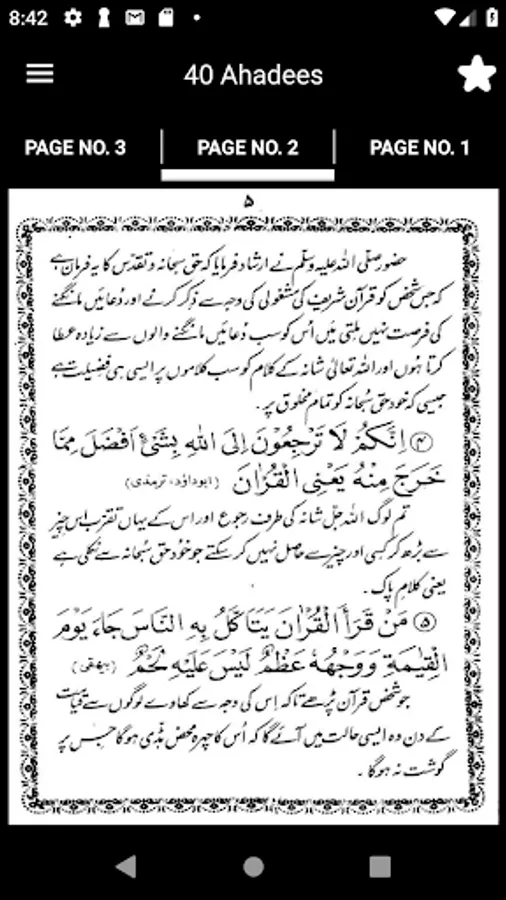 8:42
40 Ahadees
PAGE NO. 3 PAGE NO. 2 PAGE NO. 1
۵
حضور صلی اللہ علیہ وسلم نے ارشاد فرمایا کہ حق سبحانہ و تقدس کا یہ فرمان ہے
کہ جس شخص کو قرآن شریف کی مشغولی کی وجہ سے ذکر کرنے اور دُعائیں مانگنے
کی فرصت نہیں ملتی میں اُس کو سب دُعائیں مانگنے والوں سے زیادہ عطا
کرتا ہوں اور اللہ تعالیٰ شانہ کے کلام کو سب کلاموں پر ایسی ہی فضیلت ہے
جیسی کہ خود حق سُبحانہ کو تمام مخلوق پر۔
④ اِنَّكُمْ لَا تَرْجِعُوْنَ اِلَى اللهِ بِشَىْءٍ اَفْضَلَ مِمَّا
خَرَجَ مِنْهُ يَعْنِى الْقُرْاٰنَ (ابوداؤد، ترمذی)
تم لوگ اللہ جل شانہ کی طرف رجوع اور اس کے یہاں تقرب اس چیز
سے بڑھ کر کسی اور چیز سے حاصل نہیں کر سکتے جو خود حق سُبحانہ سے نکلی ہے
یعنی کلام پاک۔
⑤ مَنْ قَرَأَ الْقُرْاٰنَ يَتَاَكَّلُ بِهِ النَّاسَ جَاءَ يَوْمَ
الْقِيٰمَةِ وَوَجْهُهٗ عَظْمٌ لَيْسَ عَلَيْهِ لَحْمٌ (بیهقی)
جو شخص قرآن پڑھے تاکہ اس کی وجہ سے کھاوے لوگوں سے قیامت
کے دن وہ ایسی حالت میں آئے گا کہ اُس کا چہرہ محض ہڈی ہوگا جس پر
گوشت نہ ہوگا۔